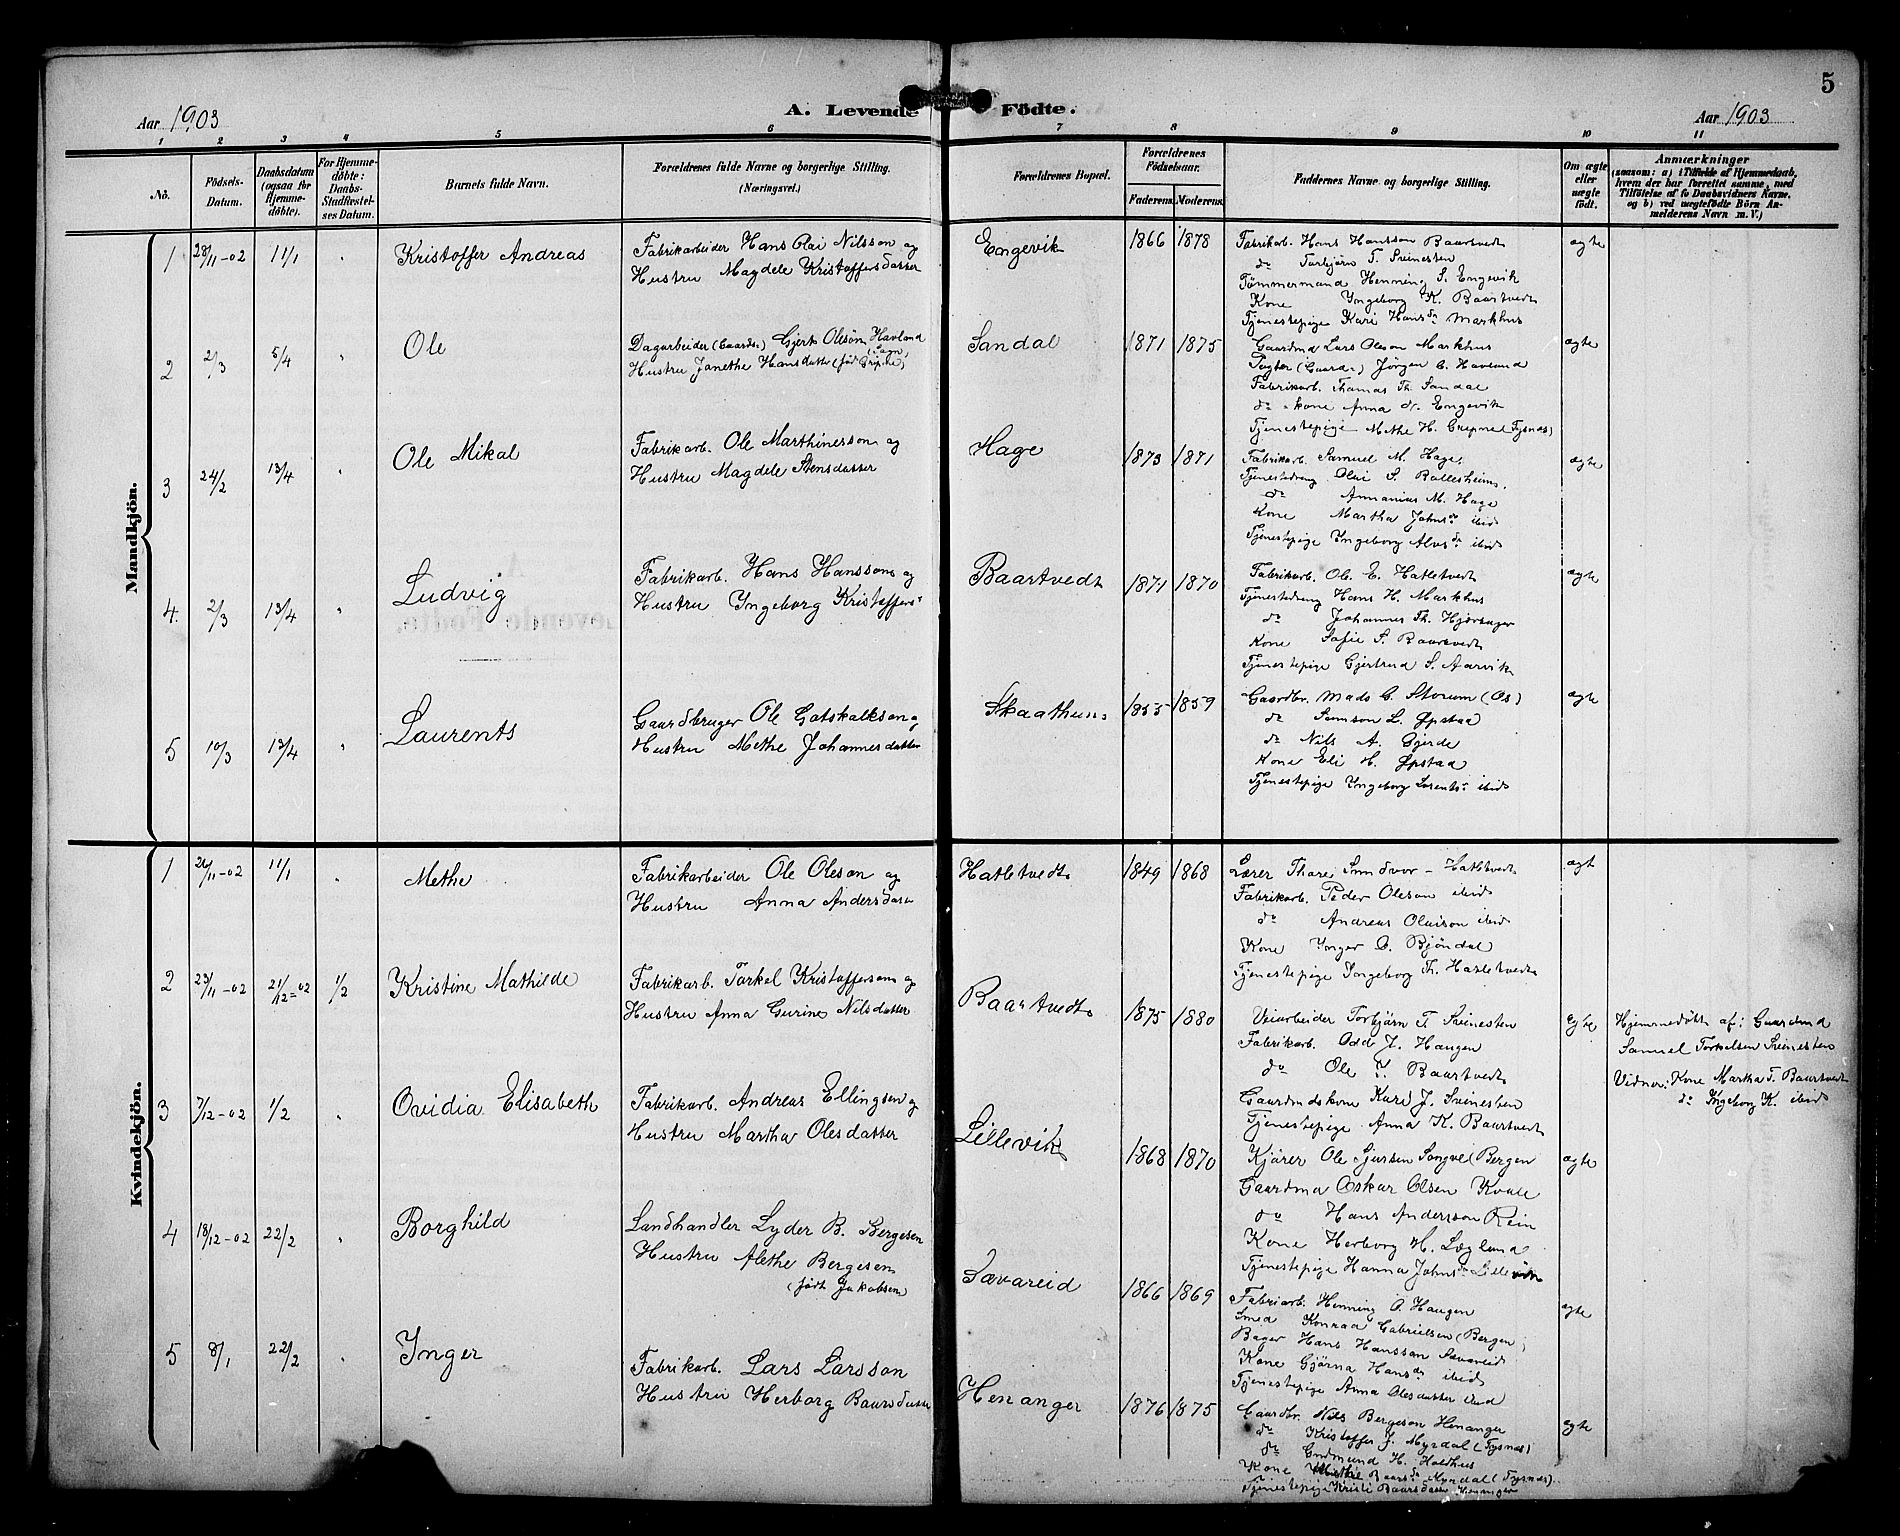 5
Aar 1903
A. Levende Födte.
Aar 1903
1 2 3 4 5 6 7 8 9 10 11
No.
Födsels-Datum.
Daabsdatum (ogsaa for Hjemmedöbte).
For Hjemmedöbte: Daabs-Stadfæstelses Datum.
Barnets fulde Navn.
Forældrenes fulde Navne og borgerlige Stilling. (Næringsvei.)
Forældrenes Bopæl.
Forældrenes Födselsaar.
Faderens. Moderens.
Faddernes Navne og borgerlige Stilling.
Om ægte eller uægte födt.
Anmærkninger
(saasom: a) i Tilfælde af Hjemmedaab, hvem der har forrettet samme, med Tilföielse af to Daabsvidners Navne, og b) ved uægtefödte Börn Anmelderens Navn m. V.)
Mandkjön.
1 28/11-02 11/1 " Kristoffer Andreas
Fabrikarbeider Hans Rai Nilsson og
Hustru Magdele Kristoffersdatter
Engevik 1866 1878
Fabrikarb. Hans Hansson Baartvedt ægte
do Torbjörn T. Sveinesten
Tømmermand Henning S. Engevik
Kone Yngeborg K. Baartvedt
Tjenestepige Kari Hansda Markhus
2 2/3 5/4 " Ole
Dagarbeider (Gaards-) Gjert Olesön Havland
Hustru Janethe Hansdatter (föd
Sandal 1871 1875
Gaardmd Lars Oleson Markhus ægte
Pagter (Gaard-) Jørgen C. Havland
Fabrikarb. Thomas Th. Sandal
do -kone Anna Engevik
Tjenestepige Methe H. (Tysnes)
3 24/2 13/4 " Ole Mikal
Fabrikarb. Ole Marthinesson og
Hustru Magdele Stensdatter
Hage 1873 1871
Fabrikarb. Samuel M. Hage. ægte
Tjenestedreng Olai S. Ballesheim.
do Annanias M. Hage
Kone Martha Johnsda ibid
Tjenestepige Yngeborg Alvsda ibid
4. 2/3 13/4 " Ludvig
Fabrikarb. Hans Hansson og
Hustru Yngeborg Kristoffers-
Baartvedt 1871 1870
Fabrikarb. Ole E. Hatletvedt ægte
Tjenestedreng Hans H. Markhus
do Johannes Th.
Kone Sofie S. Baartvedt
Tjenestepige Gjertrud S. Aarvik
5 10/3 13/4 " Laurents
Gaardbruger Ole Gotskalkson og
Hustru Methe Johannesdatter
Skaathun 1855 1859
Gaardbr. Mads G. Storum (Os) ægte
do Samson L. Øpstaa
do Nils A. Gjerde
Kone Eli H. Øpstaa
Tjenestepige Yngeborg Lorents- ibid
Kvindekjön.
1 26/11-02 11/1 " Methe
Fabrikarbeider Ole Oleson og
Hustru Anna Andersdatter
Hatletvedt 1849 1868
Lærer Thore Sundvor - Hatletvedt ægt
Fabrikarb. Peder Oleson ibid
do Andreas Olaison ibid
Kone Ynger O. Bjöndal
Tjenestepige Yngeborg Th. Hatletvedt
2 23/11-02 21/12-02 1/2 Kristine Mathilde
Fabrikarb. Torkel Kristofferson og
Hustru Anna Gurine Nilsdatter
Baartvedt 1875 1880
Veiarbeider Torbjörn T. Sveinesten ægte
Fabrikarb. Odd J. Haugen
do Ole T. Baartvedt
Gaardmdskone Kari J. Sveinesten
Tjenestepige Anna K. Baartvedt
Hjemmedöbt af: Gaardmd
Samuel Torkelsen Sveinesten
Vidner: Kone Martha T. Baartvedt
do Yngeborg K. ibid
3 7/12-02 1/2 " Ovidia Elisabeth
Fabrikarb. Andreas Ellingsen og
Hustru Martha Olesdatter
Lillevik 1868 1870
Kjörer Ole Sjursen Songve (Bergen ægte
Gaardmd Oskar Olsen Kvale
do Hans Andersson Rein
Kone Herborg H. Lægland
Tjenestepige Hanna Johnsda Lillevik
4 18/12-02 22/2 " Borghild
Landhandler Lyder B. Bergesen
Hustru Alethe Bergesen
(födt Jakobsen
Sævareid 1866 1869
Fabriarb. Henning O. Haugen ægte
Smed Konrad Gabrielsen (Bergen)
Bager Hans Hansson Sævareid
Kone Gjörna Hansda ibid
Tjenestepige Anna Olesdatter ibid
5 8/1 22/2 " Ynger
Fabrikarb. Lars Larsson
Hustru Herborg Baarsdatter
Henanger 1876 1875
Gaardbr. Nils Bergeson Henanger ægte
do Kristoffer J. Myrdal (Tysnæs)
do Gudmund H. Holdhus
Kone Methe Baarsda Myrdal (Tysnæs).
Tjenestepige Kristi Baarsdatter Henanger